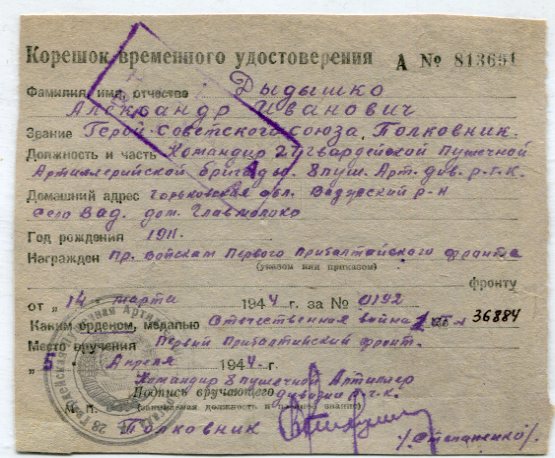 Корешок временного удостоверения А № 813651
Фамилия, имя, отчество Дыдышко
Александр Иванович
Звание Герой Советского союза, Полковник.
Должность и часть Командир 27 гвардейской Пушечной
Артиллерийской бригады. 8 пуш. Арт. див. р-г-к.
Домашний адрес Горьковская обл. Вадский р-н
село Вад. дом. Главмолоко
Год рождения 1911.
Награжден Пр. войскам Первого Прибалтайского фронта
(указом или приказом)
фронту
от „14" марта 1944 г. за № 0192
Каким орденом, медалью Отечественная война 36884
Место вручения Первый Прибалтийский фронт.
„5" Апреля 1944 г.
Командир 8 пушечной Артиллер
Подпись вручающего дивизии р-г-к.
М. П. (занимаемая должность и военное звание)
Полковник /Степаненко/.